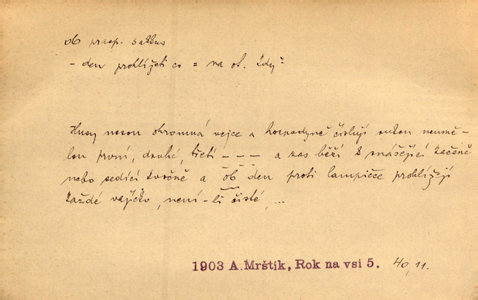 ob praep. salbus
- den prohlížeti co = na ot. "kdy"
Husy nesou obromná vejce a hospodyně číslují rukou neumě-
lou první, druhé, třetí - - - a zas běží k snášející kačeně
nebo sedící kvočně a ob den proti lampičce prohlížejí
každé vajíčko, není-li čisté, ...
1903 A. Mrštík, Rok na vsi 5. 40, 11.